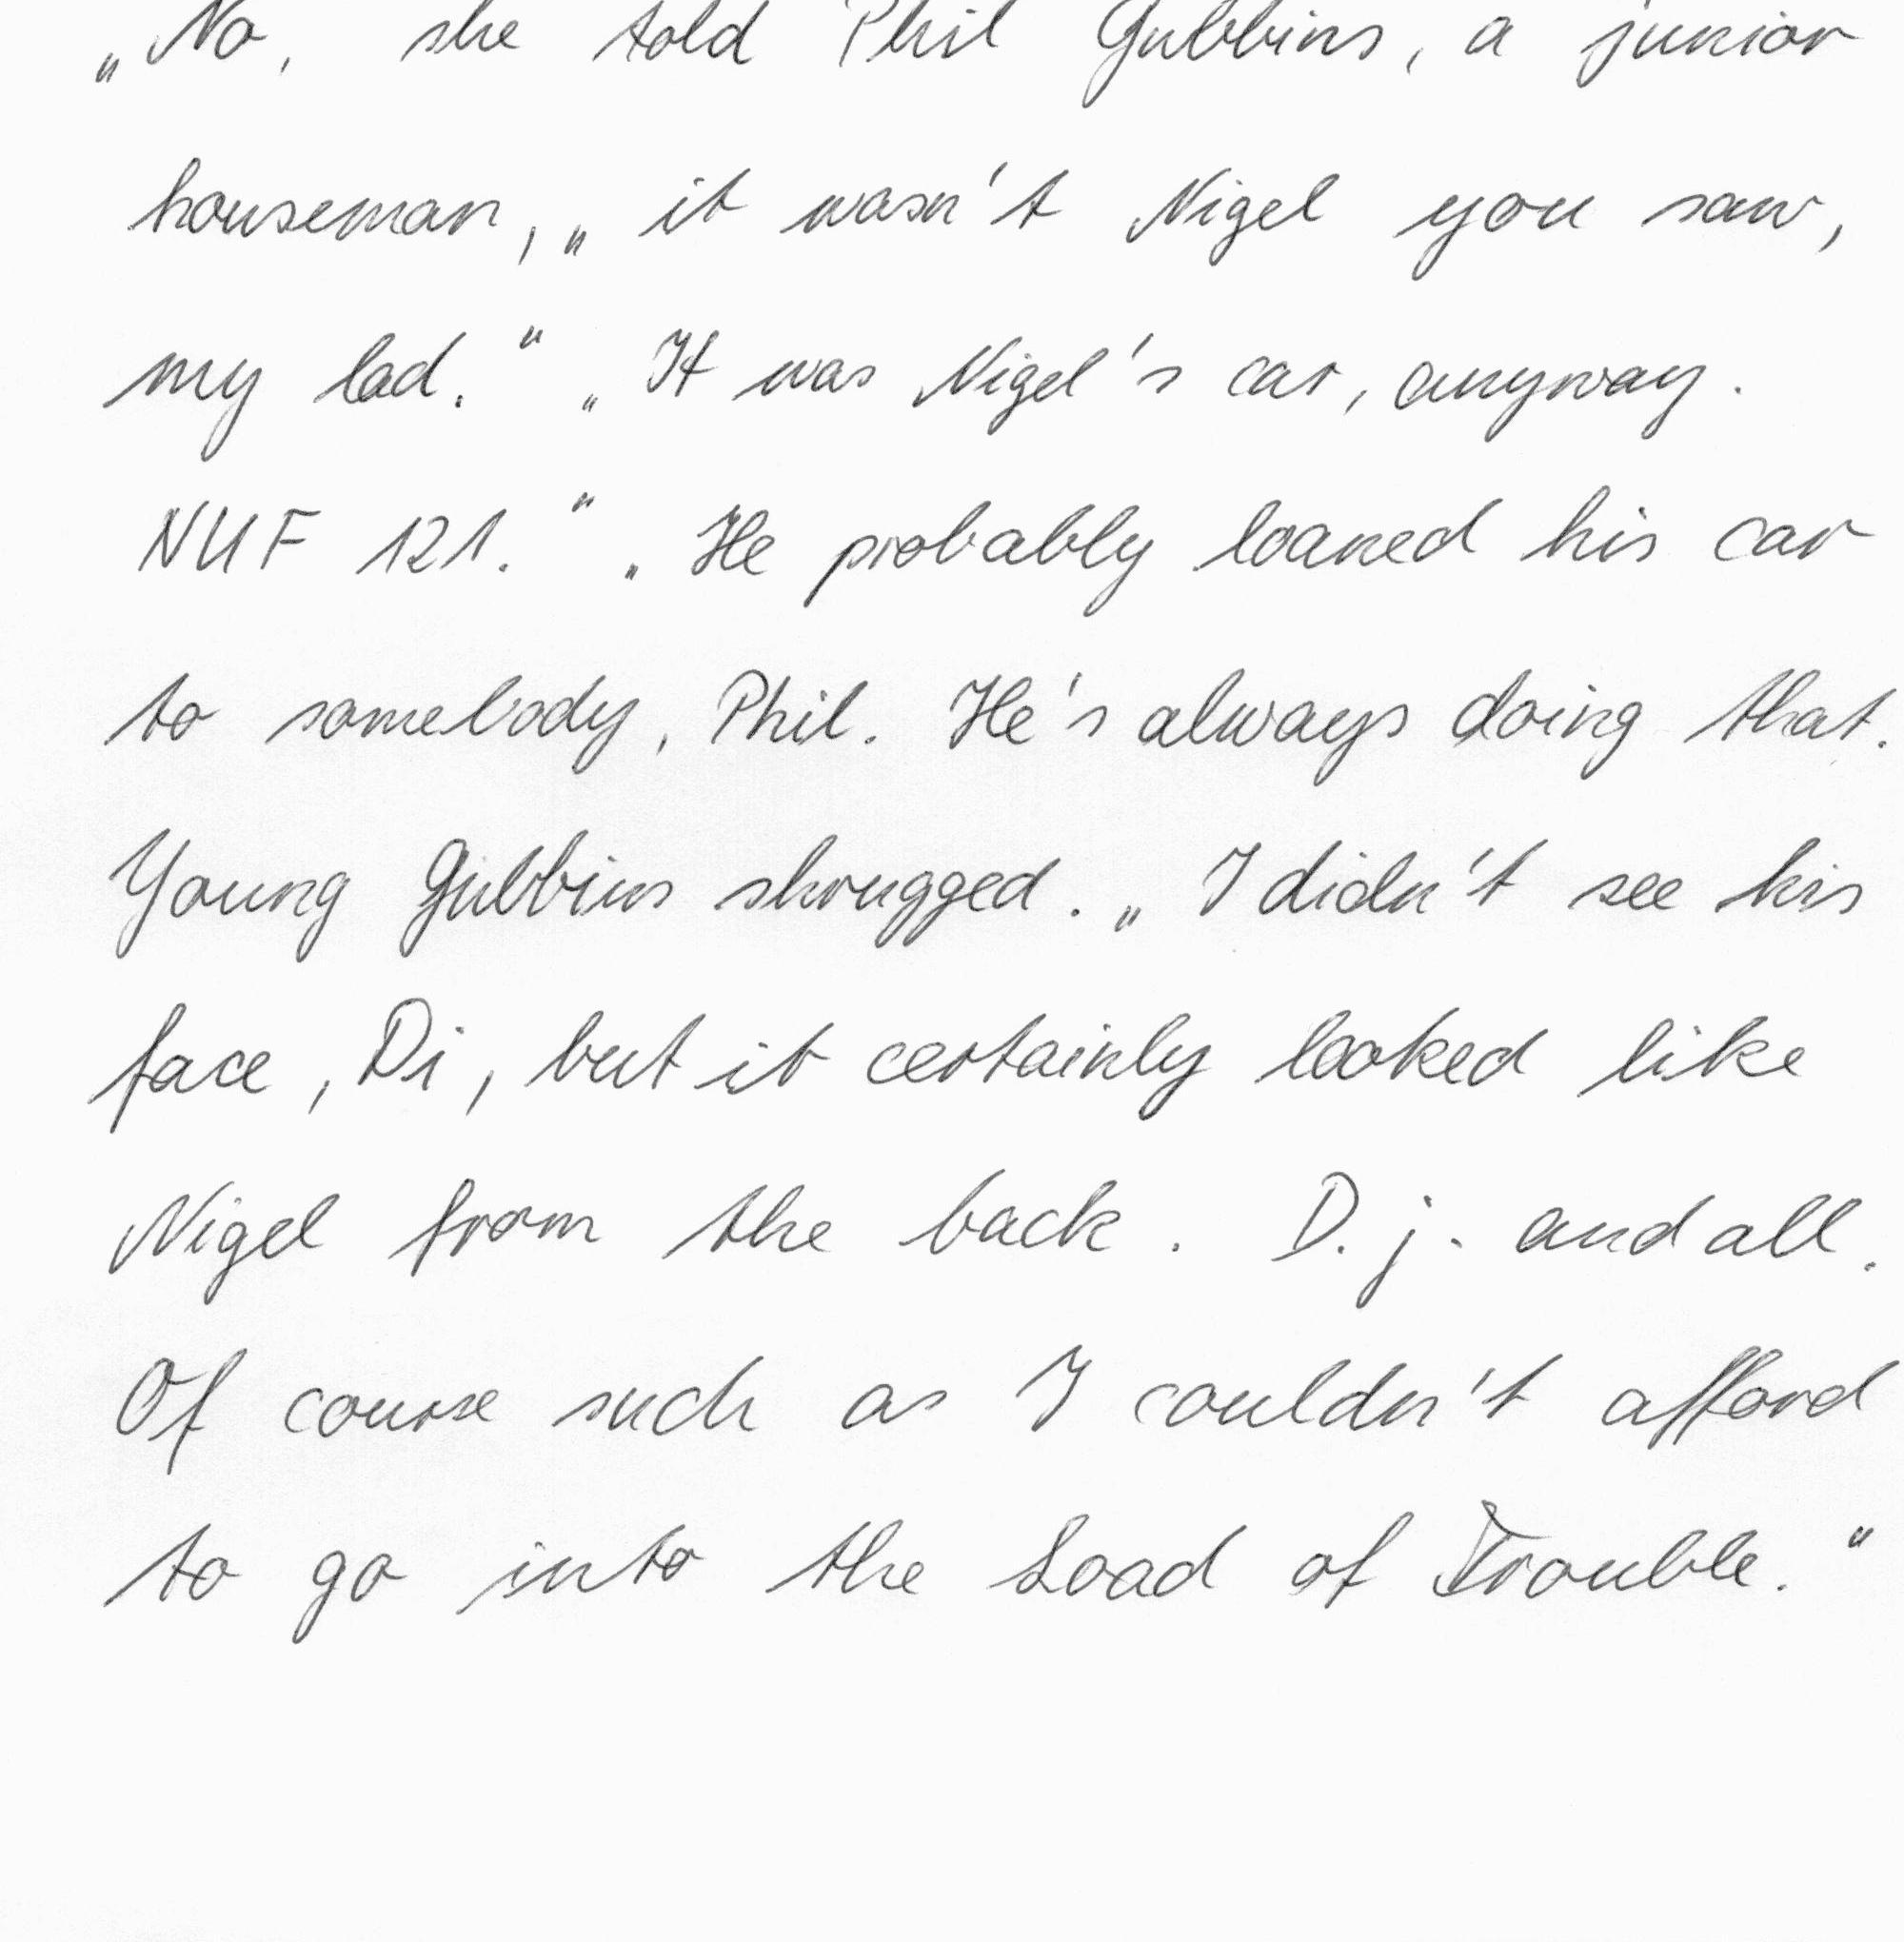 „No, she told Phil Gubbins, a junior
houseman, „ it wasn't Nigel you saw,
my lad." „It was Nigel's car, anyway.
NUF 121." „He probably loaned his car
to somebody, Phil. He's always doing that.
Young Gubbins shrugged. „ I didn't see his
face, Di, but it certainly looked like
Nigel from the back. D. j. and all.
Of course such as I couldn't afford
to go into the Load of Trouble."